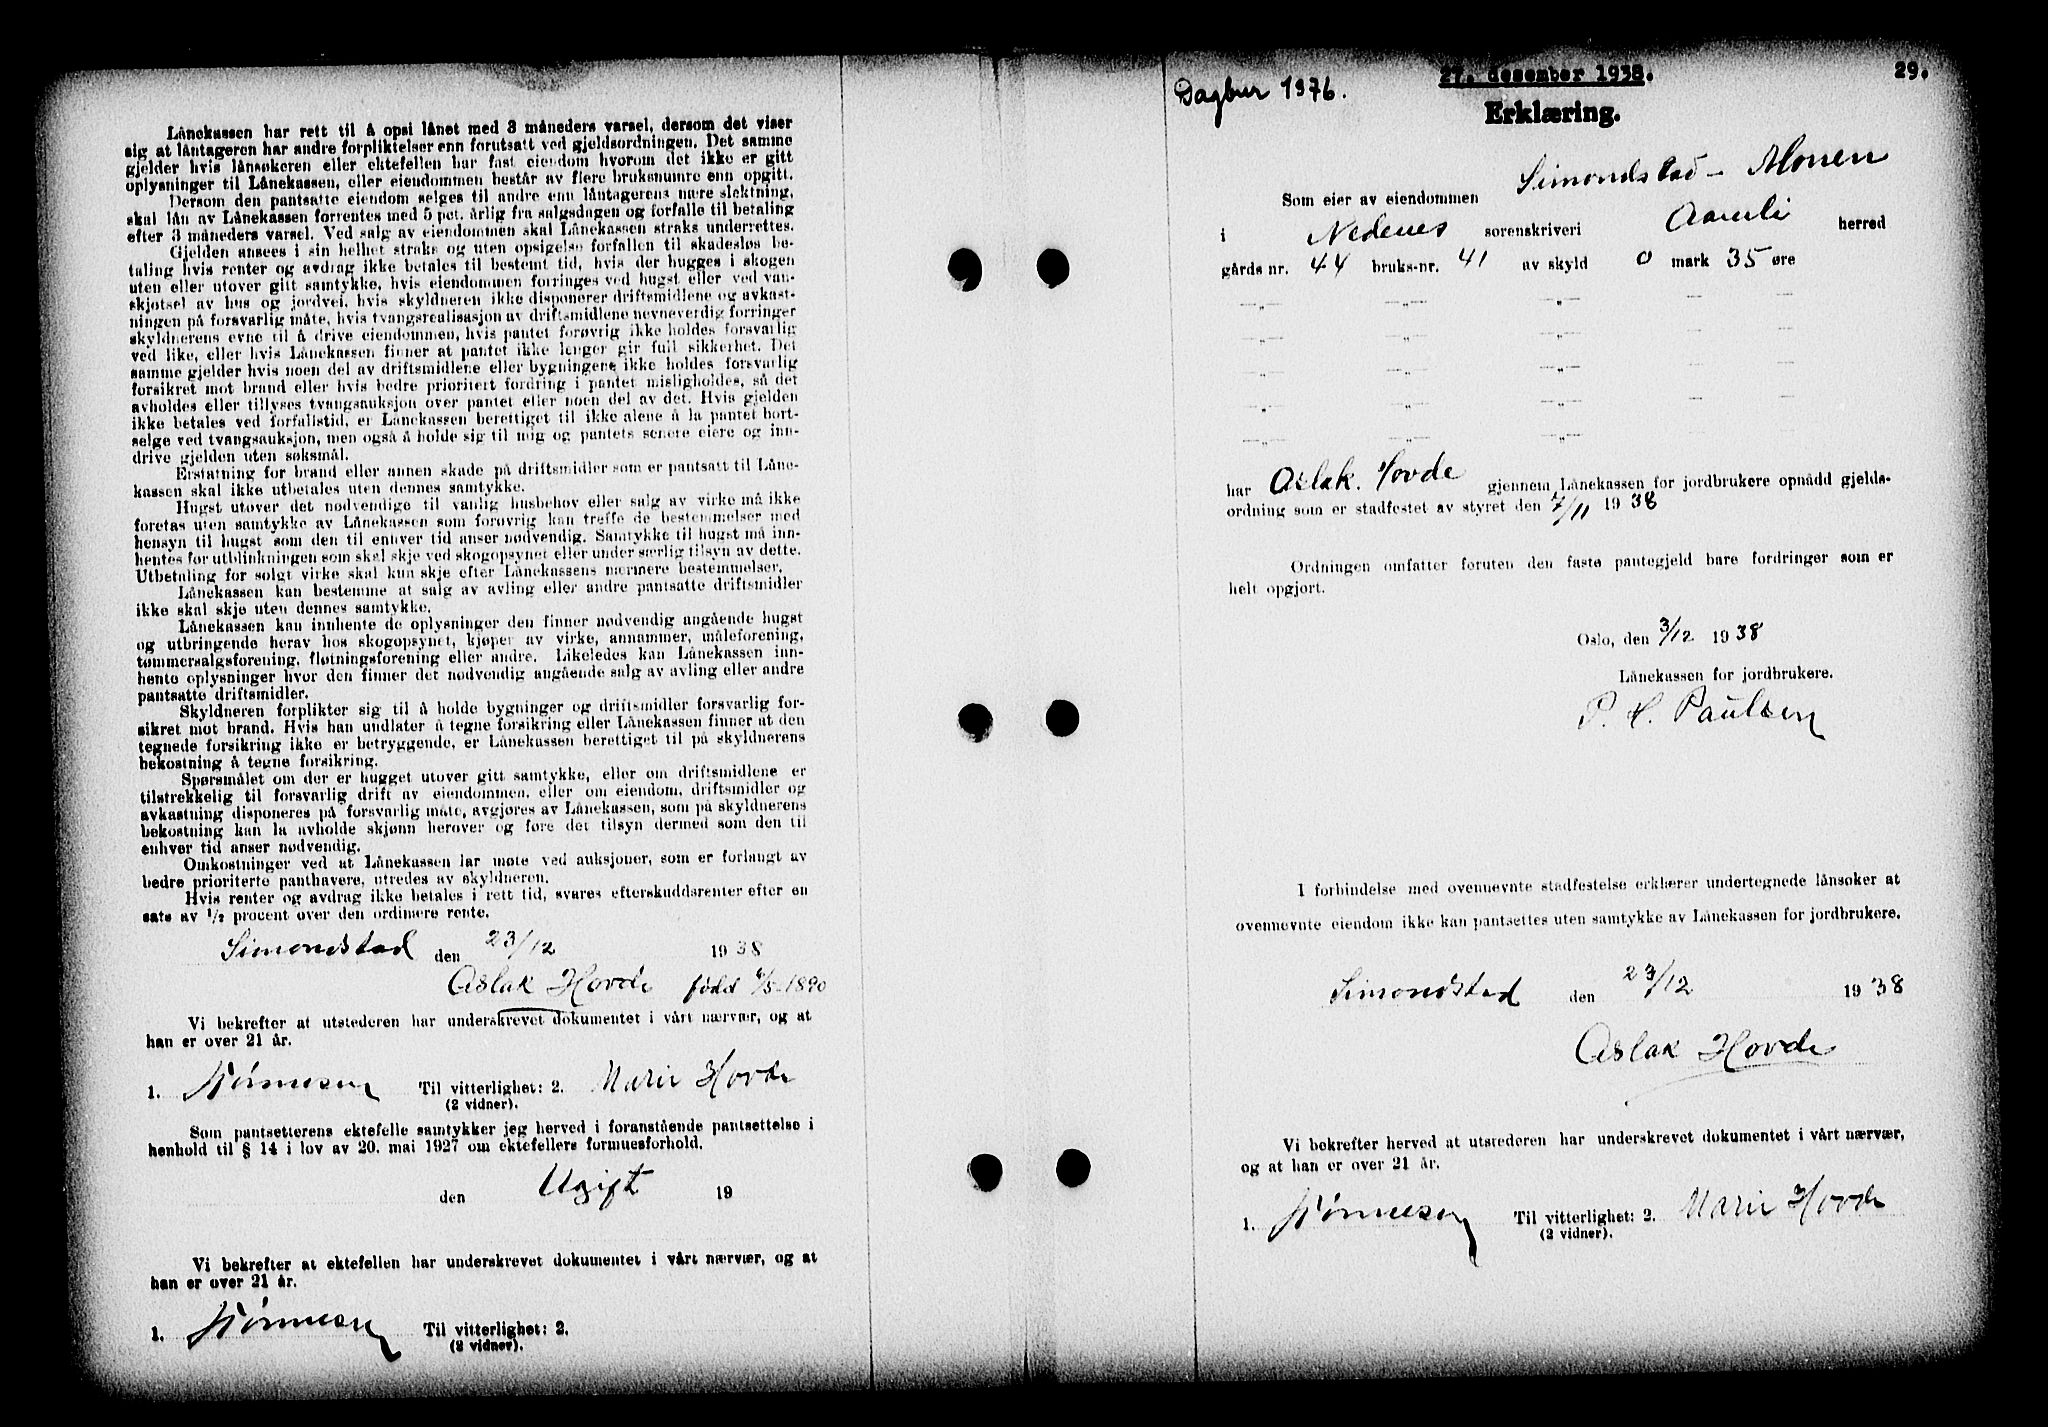 Lånekassen har rett til å opsi lånet med 3 måneders varsel, dersom det viser
sig at låntageren har andre forpliktelser enn forutsatt ved gjeldsordningen. Det samme
gjelder hvis lånsøkeren eller ektefellen har fast eiendom hvorom det ikke er gitt
oplysninger til Lånekassen, eller eiendommen består av flere bruksnumre enn opgitt.
Dersom den pantsatte eiendom selges til andre enn låntagerens nære slektning,
skal lån av Lånekassen forrentes med 5 pct. årlig fra salgsdagen og forfalle til betaling
efter 3 måneders varsel. Ved salg av eiendommen skal Lånekassen straks underrettes.
Gjelden ansees i sin helhet straks og uten opsigelse forfallen til skadesløs be-
taling hvis renter og avdrag ikke betales til bestemt tid, hvis der hugges i skogen
uten eller utover gitt samtykke, hvis eiendommen forringes ved hugst eller ved van-
skjøtsel av hus og jordvei, hvis skyldneren ikke disponerer driftsmidlene og avkast-
ningen på forsvarlig måte, hvis tvangsrealisasjon av driftsmidlene nevneverdig forringer
skyldnerens evne til å drive eiendommen, hvis pantet forøvrig ikke holdes forsvarlig
ved like, eller hvis Lånekassen finner at pantet ikke lenger gir full sikkerhet. Det
samme gjelder hvis noen del av driftsmidlene eller bygningene ikke holdes forsvarlig
forsikret mot brand eller hvis bedre prioritert fordring i pantet misligholdes, så det
avholdes eller tillyses tvangsauksjon over pantet eller noen del av det. Hvis gjelden
ikke betales ved forfallstid, er Lånekassen berettiget til ikke alene å la pantet bort-
selge ved tvangsauksjon, men også å holde sig til mig og pantets senere eiere og inn-
drive gjelden uten søksmål.
Erstatning for brand eller annen skade på driftsmidler som er pantsatt til Låne-
kassen skal ikke utbetales uten dennes samtykke.
Hugst utover det nødvendige til vanlig husbehov eller salg av virke må ikke
foretas uten samtykke av Lånekassen som forøvrig kan treffe de bestemmelser med
hensyn til hugst som den til enhver tid anser nødvendig. Samtykke til hugst må inn-
hentes før utblinkningen som skal skje ved skogopsynet eller under særlig tilsyn av dette.
Utbetaling for solgt virke skal kun skje efter Lånekassens nærmere bestemmelser.
Lånekassen kan bestemme at salg av avling eller andre pantsatte driftsmidler
ikke skal skje uten dennes samtykke.
Lånekassen kan innhente de oplysninger den finner nødvendig angående hugst
og utbringende herav hos skogopsynet, kjøper av virke, annammer, måleforening,
tømmersalgsforening, fløtningsforening eller andre. Likeledes kan Lånekassen inn-
hente oplysninger hvor den finner det nødvendig angående salg av avling eller andre
pantsatte driftsmidler.
Skyldneren forplikter sig til å holde bygninger og driftsmidler forsvarlig for-
sikret mot brand. Hvis han undlater å tegne forsikring eller Lånekassen finner at den
tegnede forsikring ikke er betryggende, er Lånekassen berettiget til på skyldnerens
bekostning å tegne forsikring.
Spørsmålet om der er hugget utover gitt samtykke, eller om driftsmidlene er
tilstrekkelig til forsvarlig drift av eiendommen, eller om eiendom, driftsmidler og
avkastning disponeres på forsvarlig måte, avgjøres av Lånekassen, som på skyldnerens
bekostning kan la avholde skjønn herover og føre det tilsyn dermed som den til
enhver tid anser nødvendig.
Omkostninger ved at Lånekassen lar møte ved auksjoner, som er forlangt av
bedre prioriterte panthavere, utredes av skyldneren.
Hvis renter og avdrag ikke betales i rett tid, svares efterskuddsrenter efter en
sats av 1/2 procent over den ordinære rente.
Simondstad den 23/12 1938
Aslak Hovde født /5-1890
Vi bekrefter at utstederen har underskrevet dokumentet i vårt nærvær, og at
han er over 21 år.
1. Til vitterlighet: 2. Marie Hovde
(2 vidner).
Som pantsetterens ektefelle samtykker jeg herved i foranstående pantsettelse i
henhold til § 14 i lov av 20. mai 1927 om ektefellers formuesforhold.
den Ugift 19
Vi bekrefter at ektefellen har underskrevet dokumentet i vårt nærvær, og at
han er over 21 år.
1. Til vitterlighet: 2.
(2 vidner).
Dagbur 1976.
27. desember 1938.
29.
Erklæring.
Som eier av eiendommen Simondstad - Monen
i Nedenes sorenskriveri Aamli herred
gårds nr. 44 bruks-nr. 41 av skyld 0 mark 35 øre
har Aslak Hovde gjennem Lånekassen for jordbrukere opnådd gjelds-
ordning som er stadfestet av styret den 7/11 1938
Ordningen omfatter foruten den faste pantegjeld bare fordringer som er
helt opgjort.
Oslo, den 3/12 1938
Lånekassen for jordbrukere.
P. H. Paulsen
I forbindelse med ovennevnte stadfestelse erklærer undertegnede lånsøker at
ovennevnte eiendom ikke kan pantsettes uten samtykke av Lånekassen for jordbrukere.
Simondstad den 23/12 1938
Aslak Hovde
Vi bekrefter herved at utstederen har underskrevet dokumentet i vårt nærvær,
og at han er over 21 år.
1. Til vitterlighet: 2. Marie Hovde
(2 vidner).